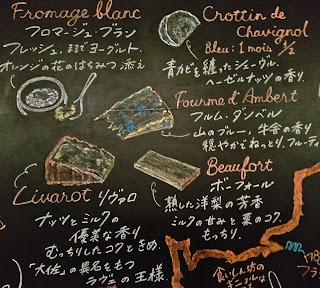 Fromage blanc
フロマージュ・ブラン
フレッシュ、まるでヨーグルト。
オレンジの花のはちみつ添え
Crottin de
Chavignol
Bleu : 1 mois 1/2
青カビを纏ったシェーヴル。
ヘーゼルナッツの香り。
Fourme d'Ambert
フルム・ダンベル
山のブルー。牛舎の香り
穏やかでねっとり、フルーティ
Livarot リヴァロ
ナッツとミルクの
優美な香り
むっちりしたコクときめ。
「大佐」の異名をもつ
ラヴニの王様。
Beaufort
ボーフォール
熟した洋梨の芳香
ミルクの甘みと栗のコク。
もっちり。
食いしん坊の
フラ